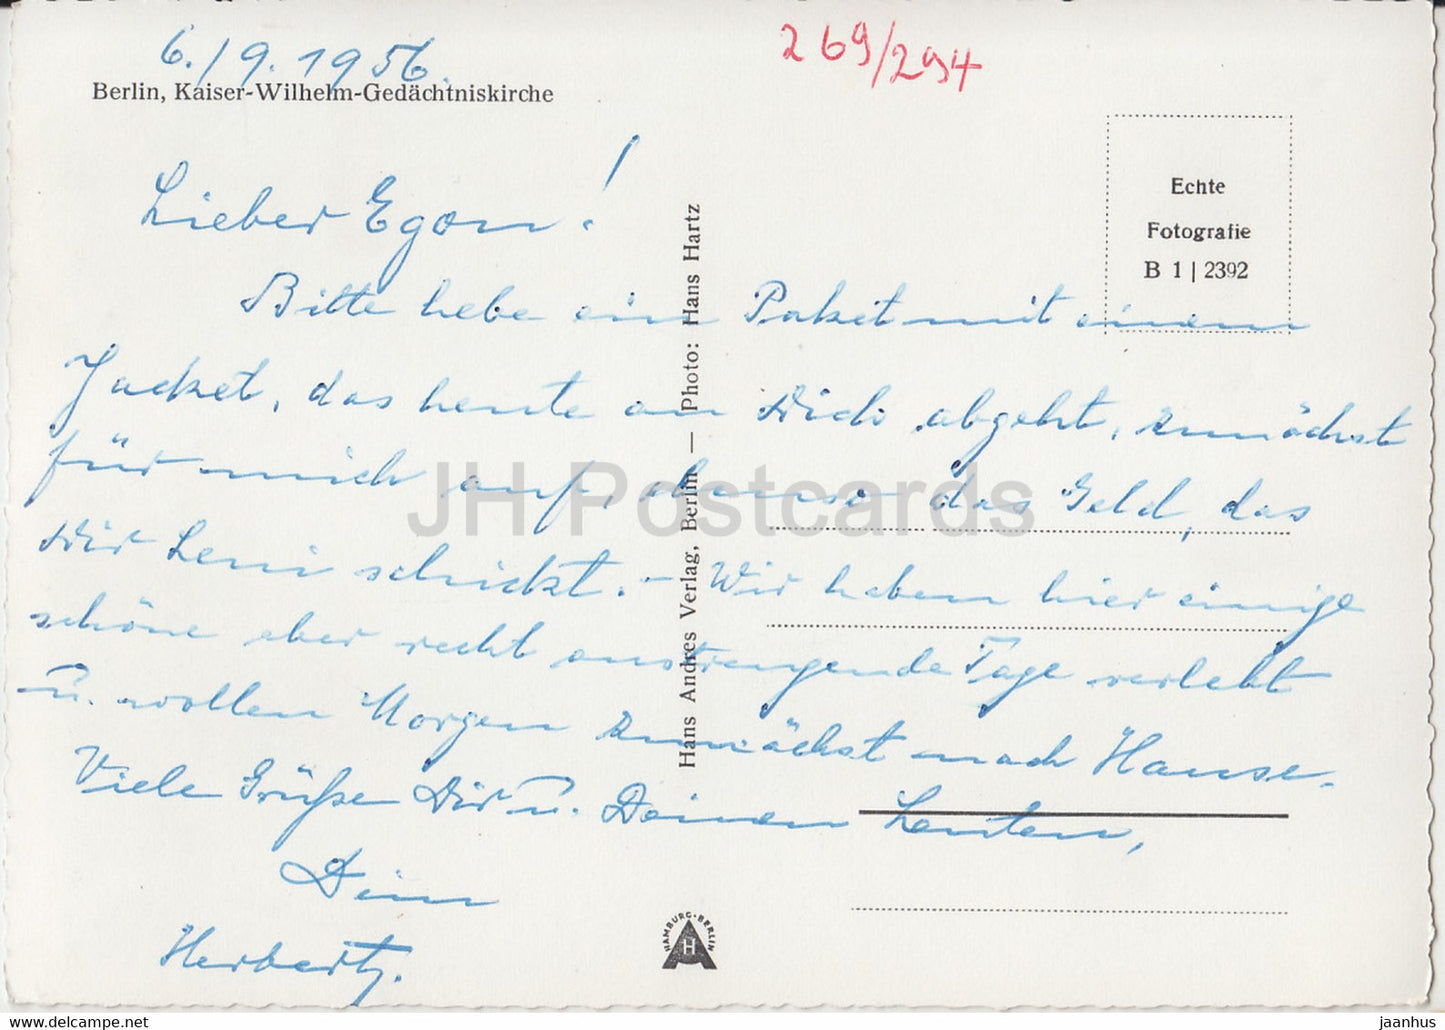 6./9.1956.
269/294
Berlin, Kaiser-Wilhelm-Gedächtniskirche
Echte
Fotografie
B 1 | 2392
Lieber Egon!
Bitte hebe ein Paket mit einem
Jacket, das heute an Dich abgeht, zunächst
für mich auf, ebenso das Geld, das
Dir Leni schickt. – Wir haben hier einige
schöne aber recht anstrengende Tage verlebt
u. wollen Morgen zunächst nach Hause.
Viele Grüße Dir u. Deinen Leuten,
Dein
Herbert
Hans Andres Verlag, Berlin — Photo: Hans Hartz
HAMBURG-BERLIN
H
JH Postcards
www.delcampe.net
jaanhus